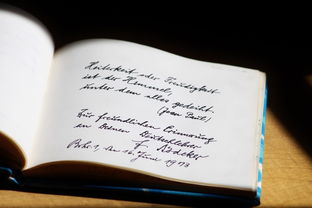 Heiterkeit oder Freudigkeit
ist der Himmel,
unter dem alles gedeiht.
(Jean Paul)
Zur freundlichen Erinnerung
an Deinen
F.
1, den 16. Juni 1978